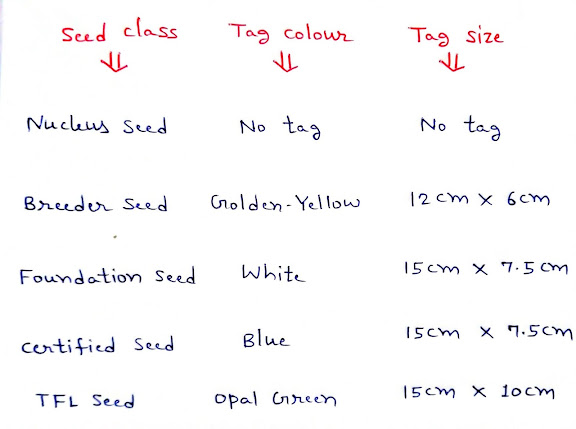 Seed class Tag colour Tag size
Nucleus Seed No tag No tag
Breeder Seed Golden-Yellow 12cm X 6cm
Foundation Seed White 15cm X 7.5cm
Certified Seed Blue 15cm X 7.5cm
TFL Seed Opal Green 15cm X 10cm